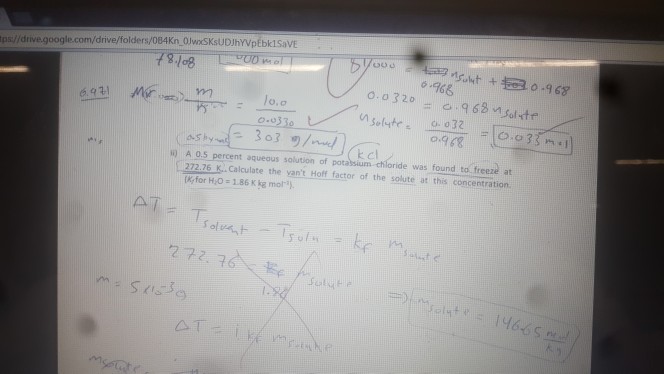 tps://drive.google.com/drive/folders/0B4Kn_0JwxSKsUDJhYVpEbk1SaVE
78.108
000 mol
81000 = n solut + 0.968
0.968
6.971
Mr = m = 10.0
0.0330
0.0320 = 0.968 n solute
n solute = 0.032 = 0.033 mol
0.968
= 303 g/mol
(kcl)
ii) A 0.5 percent aqueous solution of potassium chloride was found to freeze at
272.76 K. Calculate the van't Hoff factor of the solute at this concentration.
(Kf for H₂O = 1.86 K kg mol⁻¹).
ΔT = T solvent - T soln = kf m solute
272.76 -
m solute
1.86
m = 5x10⁻³g
=> m solute = 146.65 mol
kg
ΔT = i kf m solute
m solute